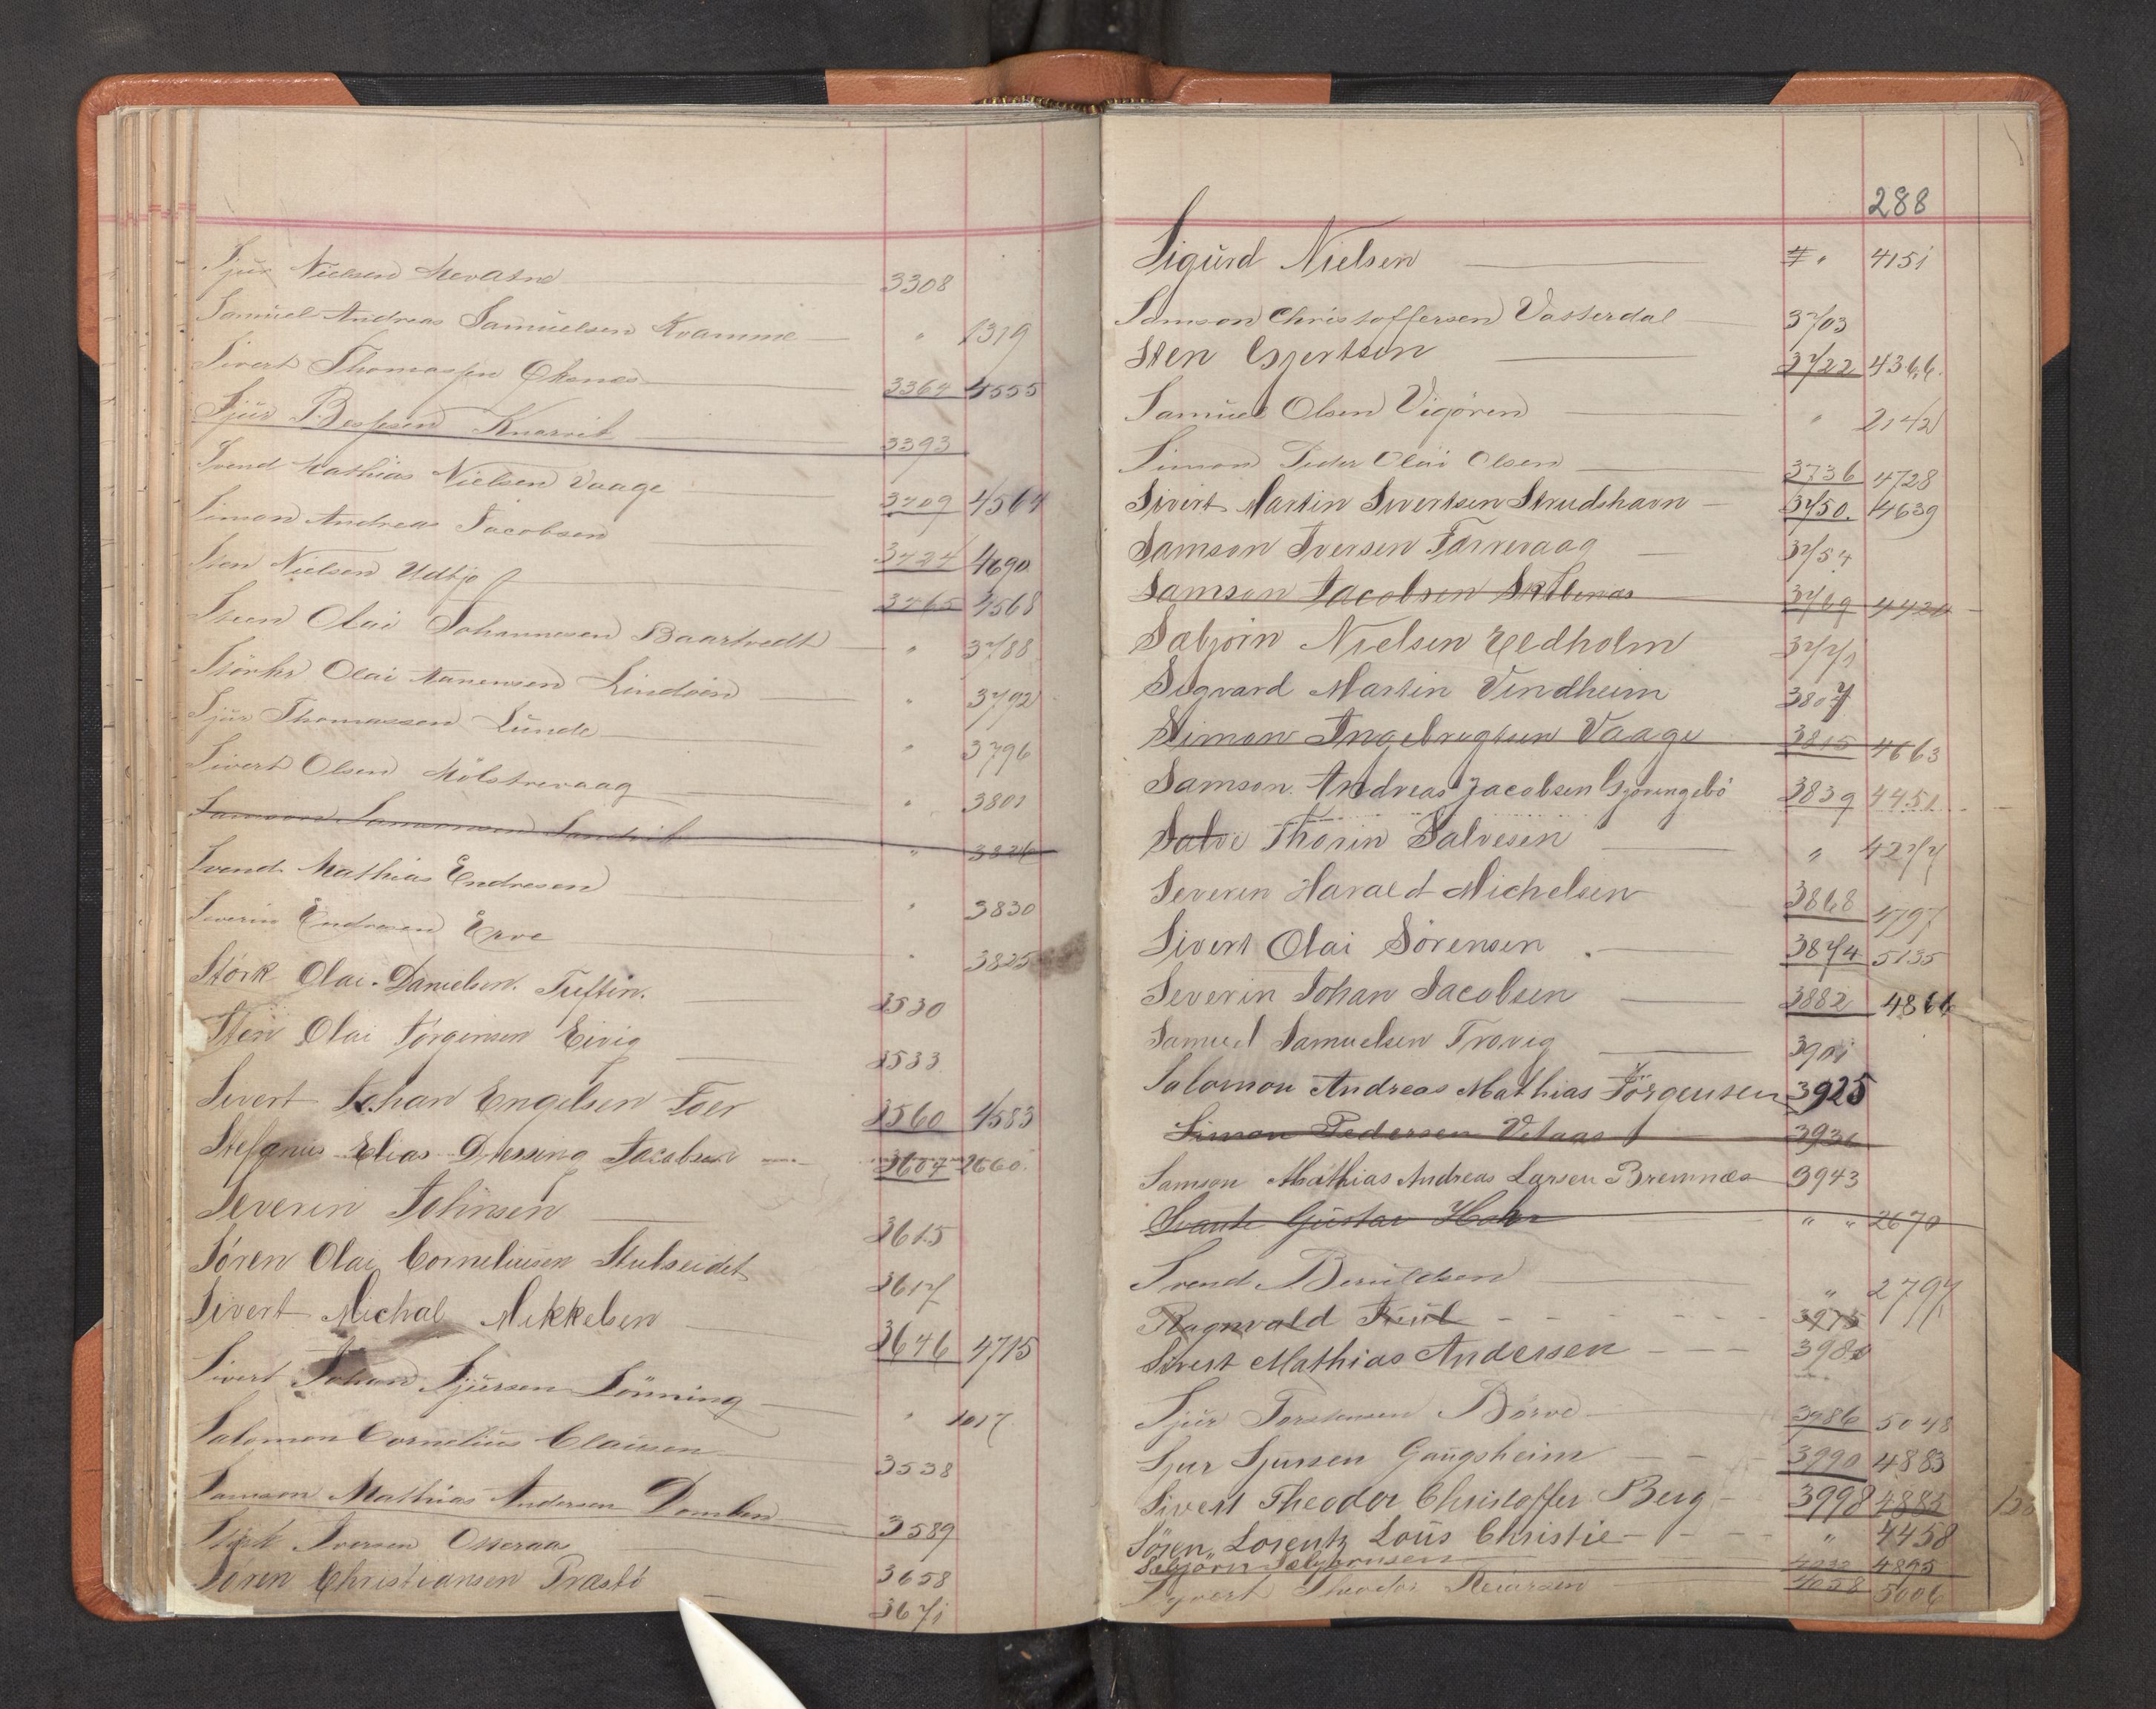 Sjur Nielsen Mevatne 3308
Samuel Andreas Samuelsen Kvamme " 1319
Sivert Thomassen Økenes 3364 4555
Sjur Knarvik 3393
Svend Mathias Nielsen Vaage 3409 4564
Simon Andreas Jacobsen 3424 4690
Sten Nielsen 3465 4568
Steen Olai Johannesen Baartvedt " 3788
Størker Olai Aanensen Lindøen " 3792
Sjur Thomassen Lunde " 3796
Sivert Olsen Mølstrevaag " 3801
Samson Samsonsen Sandvik " 3824
Svend Mathias Endresen " 3830
Severin Endresen Erve " 3825
Størk Olai Danielsen Tuftin. 3530
Sten Olai Jørgensen Eivig 3533
Sivert Johan Engelsen Foer 3560 4583
Stefanus Elias Dressing Jacobsen 3604 2660
Severin Johnsen 3615
Søren Olai Corneliusen Stutseidet 3617
Sivert Michal Mikkelsen 3646 4715
Sivert Johan Sjursen Lönning " 1017
Salomon Cornelius Claussen 3538
Samson Mathias Andersen Domben 3589
Størk Iversen 3658
Søren Christiansen Prastö 3671
288
Sigurd Nielsen " 4151
Samson Christoffersen Vatterdal 3703
Sten Espertsen 3722 4366.
Samuel Olsen Vigøren " 2142
Simon Peder Olai Olsen 3736 4728
Sivert Martin Sivertsen Strudshavn 3750. 4639
Samson Iversen Farrevaag 3754
Samson Jacobsen 3769 4424
Sæbjörn Nielsen Eldholm 3771
Sigvard Martin Vindheim 3807
Simon Ingebrigtsen Vaage 3815 4663
Samson Andreas Jacobsen Gjøringebö 3839 4451
Salve Thorin Salvesen " 4277
Severin Harald Michelsen 3868 4797
Sivert Olai Sörensen 3874 5135
Severin Johan Jacobsen 3882 4866
Samuel Samuelsen Trovig 3901
Salomon Andreas Mathias Jörgensen 3925
Simon Pedersen 3936
Samson Mathias Andreas Larsen Bremnæs 3943
Svante Gustav " " 2670
Svend Beruldsen " 2797
Ragnvald Juul 3975
Sivert Mathias Andersen 3980
Sjur Torstensen Børve 3986 5048
Sjur Sjursen Gaugsheim 3990 4883
Sivert Theodor Christoffer Berg 3998 4882
Søren Lorentz Loüs Christie " 4458
Sæbjörn Sæbjörnsen 4895
Syvert Theodor Reiersen 4058 5006